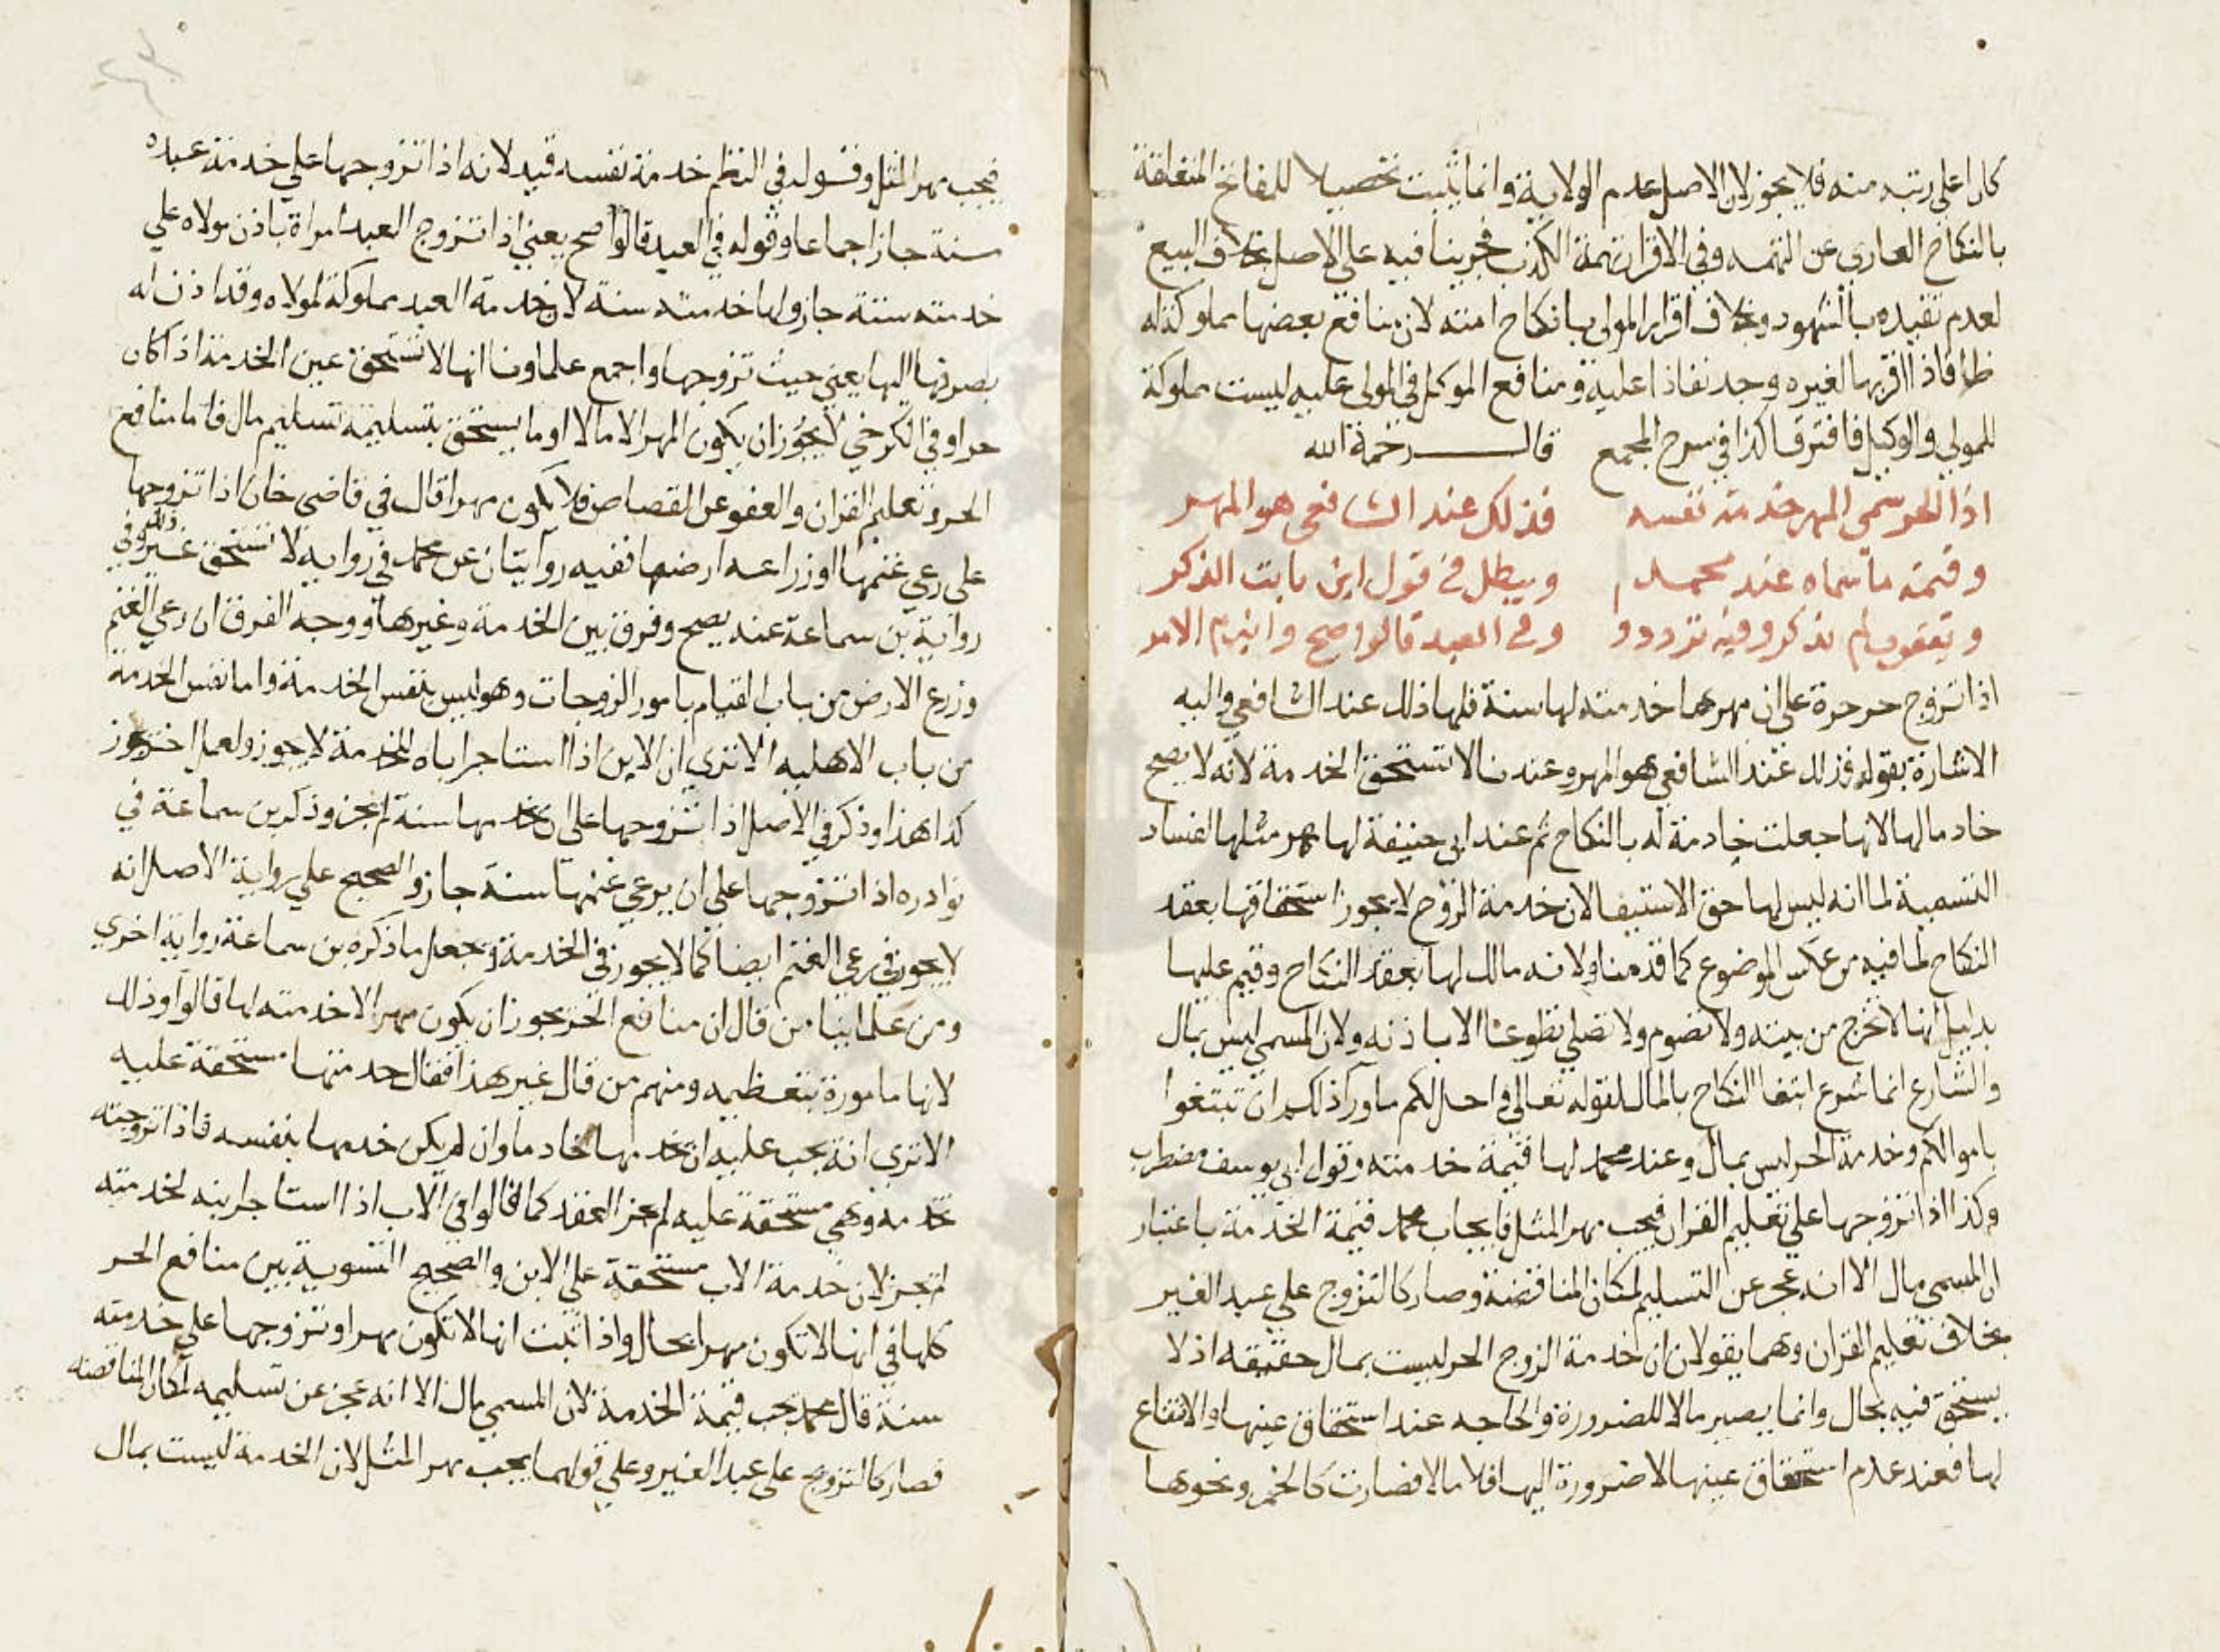 كان اعلى رتبه منه فلا يجوز لان الاصل عدم الولاية وانما يثبت تحصيلا للمصالح المتعلقة
بالنكاح العاري عن التهمه وفي الاقرار تهمة الكذب فجرينا فيه على الاصل بخلاف البيع
لعدم تقيده بالشهود وبخلاف اقرار المولى بانكاح امته لان منافع بعضها مملوكة له
فاذا اقر بها لغيره وجد نفاذا عليه ومنافع الموكل في المولى عليه ليست مملوكة
للمولي والوكيل فافترقا كذا في شرح المجمع قال رحمة الله
اذا الحر سمى المهر خدمة نفسه فذلك عند الشافعي هو المهر
وقيمة ما سماه عند محمد ويبطل في قول ابن ثابت الذكر
ويعقوب لم يذكر وفيه تردد وفي العبد قالوا صح وانبرم الامر
اذا تزوج حر حرة على ان مهرها خدمته لها سنة فلها ذلك عند الشافعي واليه
الاشارة بقوله فذلك عند الشافعي هو المهر وعندنا لا تستحق الخدمة لانه لا يصح
خادما لها لانها جعلت خادمة له بالنكاح ثم عند ابي حنيفة لها مهر مثلها لفساد
التسمية لما انه ليس لها حق الاستيفا لان خدمة الزوج لا يجوز استحقاقها بعقد
النكاح لما فيه من عكس الموضوع كما قدمنا ولانه مالك لها بعقد النكاح وقيم عليها
بدليل انها لا تخرج من بيته ولا تصوم ولا تصلي تطوعا الا باذنه ولان المسمى ليس بمال
والشارع انما شرع ابتغا النكاح بالمال لقوله تعالى واحل لكم ما ورا ذلكم ان تبتغوا
باموالكم وخدمة الحر ليس بمال وعند محمد لها قيمة خدمته وقول ابي يوسف مضطرب
وكذا اذا تزوجها على تعليم القران فيجب مهر المثل فايجاب محمد قيمة الخدمة باعتبار
ان المسمى مال الا انه عجز عن التسليم لمكان المناقضة وصار كالتزوج علي عبد الغير
بخلاف تعليم القران وهما يقولان ان خدمة الزوج الحر ليست بمال حقيقه اذ لا
يستحق فيه بحال وانما يصير مالا للضرورة والحاجه عند استحقاق عينها والانتفاع
لها فعند عدم استحقاق عينها لا ضرورة اليها فلا مالا فصارت كالخمر ونحوها
فيجب مهر المثل وقوله في النظم خدمة نفسه قيد لانه اذا تزوجها علي خدمة عبده
سنة جاز اجماعا وقوله في العبد قالوا صح يعني اذا تزوج العبد امراة باذن مولاه علي
خدمته سنة جاز ولها خدمته سنة لان خدمة العبد مملوكة لمولاه وقد اذن له
بصرفها اليها يعني حيث تزوجها واجمع علماونا انها لا تستحق عين الخدمة اذا كان
حرا وفي الكرخي لا يجوز ان يكون المهر الا مالا او ما يستحق بتسليمه تسليم مال فاما منافع
الحر وتعليم القران والعفو عن القصاص فلا يكون مهرا قال في قاضي خان اذا تزوجها
على رعي غنمها او زراعه ارضها ففيه روايتان عن محمد في روايه لا تستحق غيره وفي
رواية بن سماعة عنه يصح وفرق بين الخدمة وغيرها ووجه الفرق ان رعي الغنم
وزرع الارض من باب القيام بامور الزوجات وهو ليس بنفس الخدمة واما نفس الخدمة
من باب الاهليه الا تري ان الابن اذا استاجر اباه للخدمة لا يجوز ولعمل اخر يجوز
كذا هذا وذكر في الاصل اذا تزوجها على ان يخدمها سنة لم يجز وذكر بن سماعة في
نوادره اذا تزوجها على ان يرعي غنمها سنة جاز والصحيح علي رواية الاصل انه
لا يجوز في رعي الغنم ايضا كما لا يجوز في الخدمة ويجعل ما ذكره بن سماعة رواية اخري
ومن علماينا من قال ان منافع الحر يجوز ان يكون مهرا الا خدمته لها قالوا وذلك
لانها مامورة بتعظيمه ومنهم من قال غير هذا فقال خدمتها مستحقة عليه
الا تري انه يجب عليه ان يخدمها خادما وان لم يكن خدمها بنفسه فاذا تزوجته
خدمه وهي مستحقة عليه لم يجز العقد كما قالوا في الاب اذا استاجر ابنه لخدمته
لم يجز لان خدمة الاب مستحقة علي الابن والصحيح التسوية بين منافع الحر
كلها في انها لا تكون مهرا بحال واذا ثبت انها لا تكون مهرا وتزوجها علي خدمته
سنة قال محمد تجب قيمة الخدمة لان المسمي مال الا انه عجز عن تسليمه لمكان المناقضه
فصار كالتزوج على عبد الغير وعلي قولهما يجب مهر المثل لان الخدمة ليست بمال